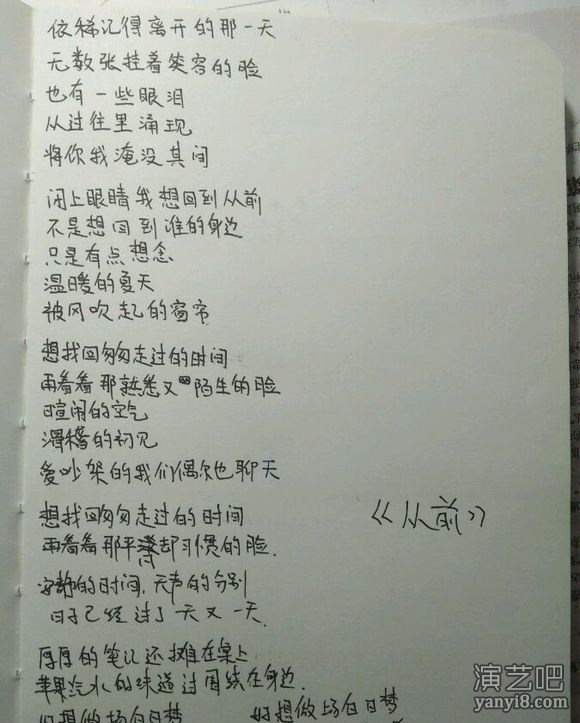 依稀记得离开的那一天
无数张挂着笑容的脸
也有一些眼泪
从过往里涌现
将你我淹没其间
闭上眼睛我想回到从前
不是想回到谁的身边
只是有点想念
温暖的夏天
被风吹起的窗帘
想找回匆匆走过的时间
再看看那熟悉又陌生的脸
喧闹的空气
滑稽的初见
爱吵架的我们偶尔也聊天
想找回匆匆走过的时间
再看看那平凡却习惯的脸.
安静的时间,无声的分别
日子已经过了一天又一天.
《从前》
厚厚的笔记还摊在桌上
苹果汽水的味道还围绕在身边.
好想做场白日梦
好想做场白日梦
演艺吧
www.yanyi8.com